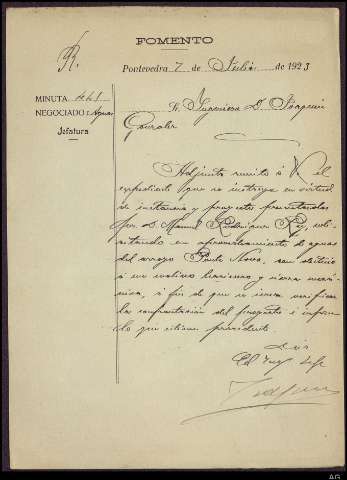 FOMENTO
Pontevedra 7 de Julio de 1923
MINUTA 441
NEGOCIADO: Aguas
Jefatura
Sr. Ingeniero D. Joaquin
Gonzalez
Adjunto remito á V. el
expediente que se instruye en virtud
de instancia y proyecto presentados
por D. Manuel Rodriguez Rey, soli-
citando un aprovechamiento de aguas
del arroyo Ponte Nova, con destino
á un molino harinero y sierra mecá-
nica, á fin de que se sirva verificar
la confrontación del proyecto é informe
lo que estime procedente.
Dios
El Ing. Jefe
AG